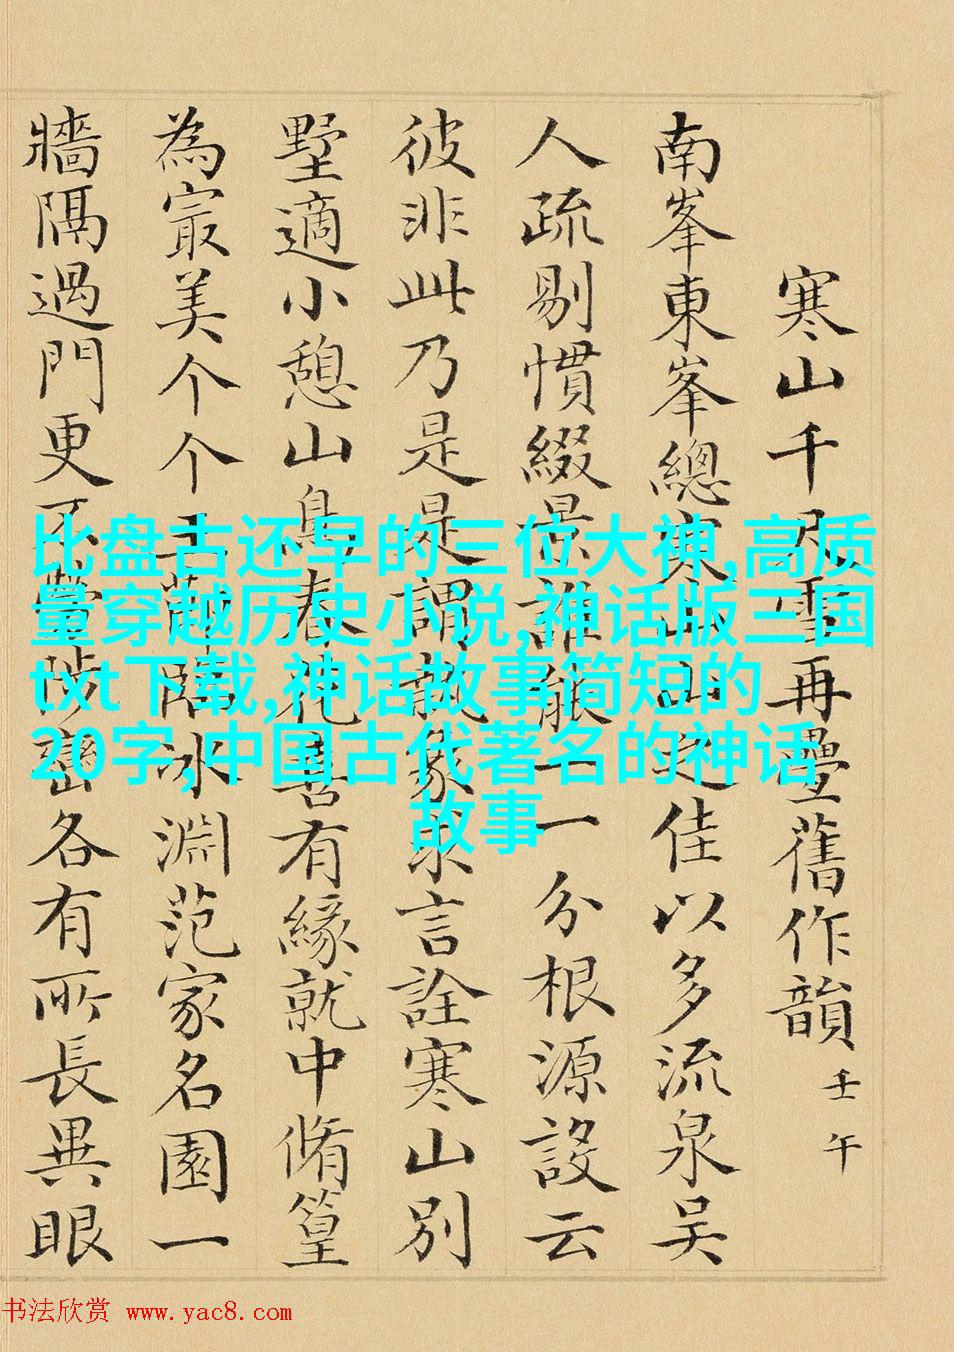 寒山千尺雪再疊舊作韻 壬午
南峯東峯總寒山山之佳以多流泉吴
人疏剔慣綴景誰能一一分根源設云
彼非此乃是是謂象求言詮寒山別
墅適小憩山鳥春花喜有緣就中脩篁
為冣美个个玉臨冰淵范家名園一
牆隔過門更不勞陟巒各有所長異眼
比盘古还早的三位大神,高质
量穿越历史小说,神话版三国
txt下载,神话故事简短的
20字,中国古代著名的神话
故事
书法欣赏 www.yac8.com